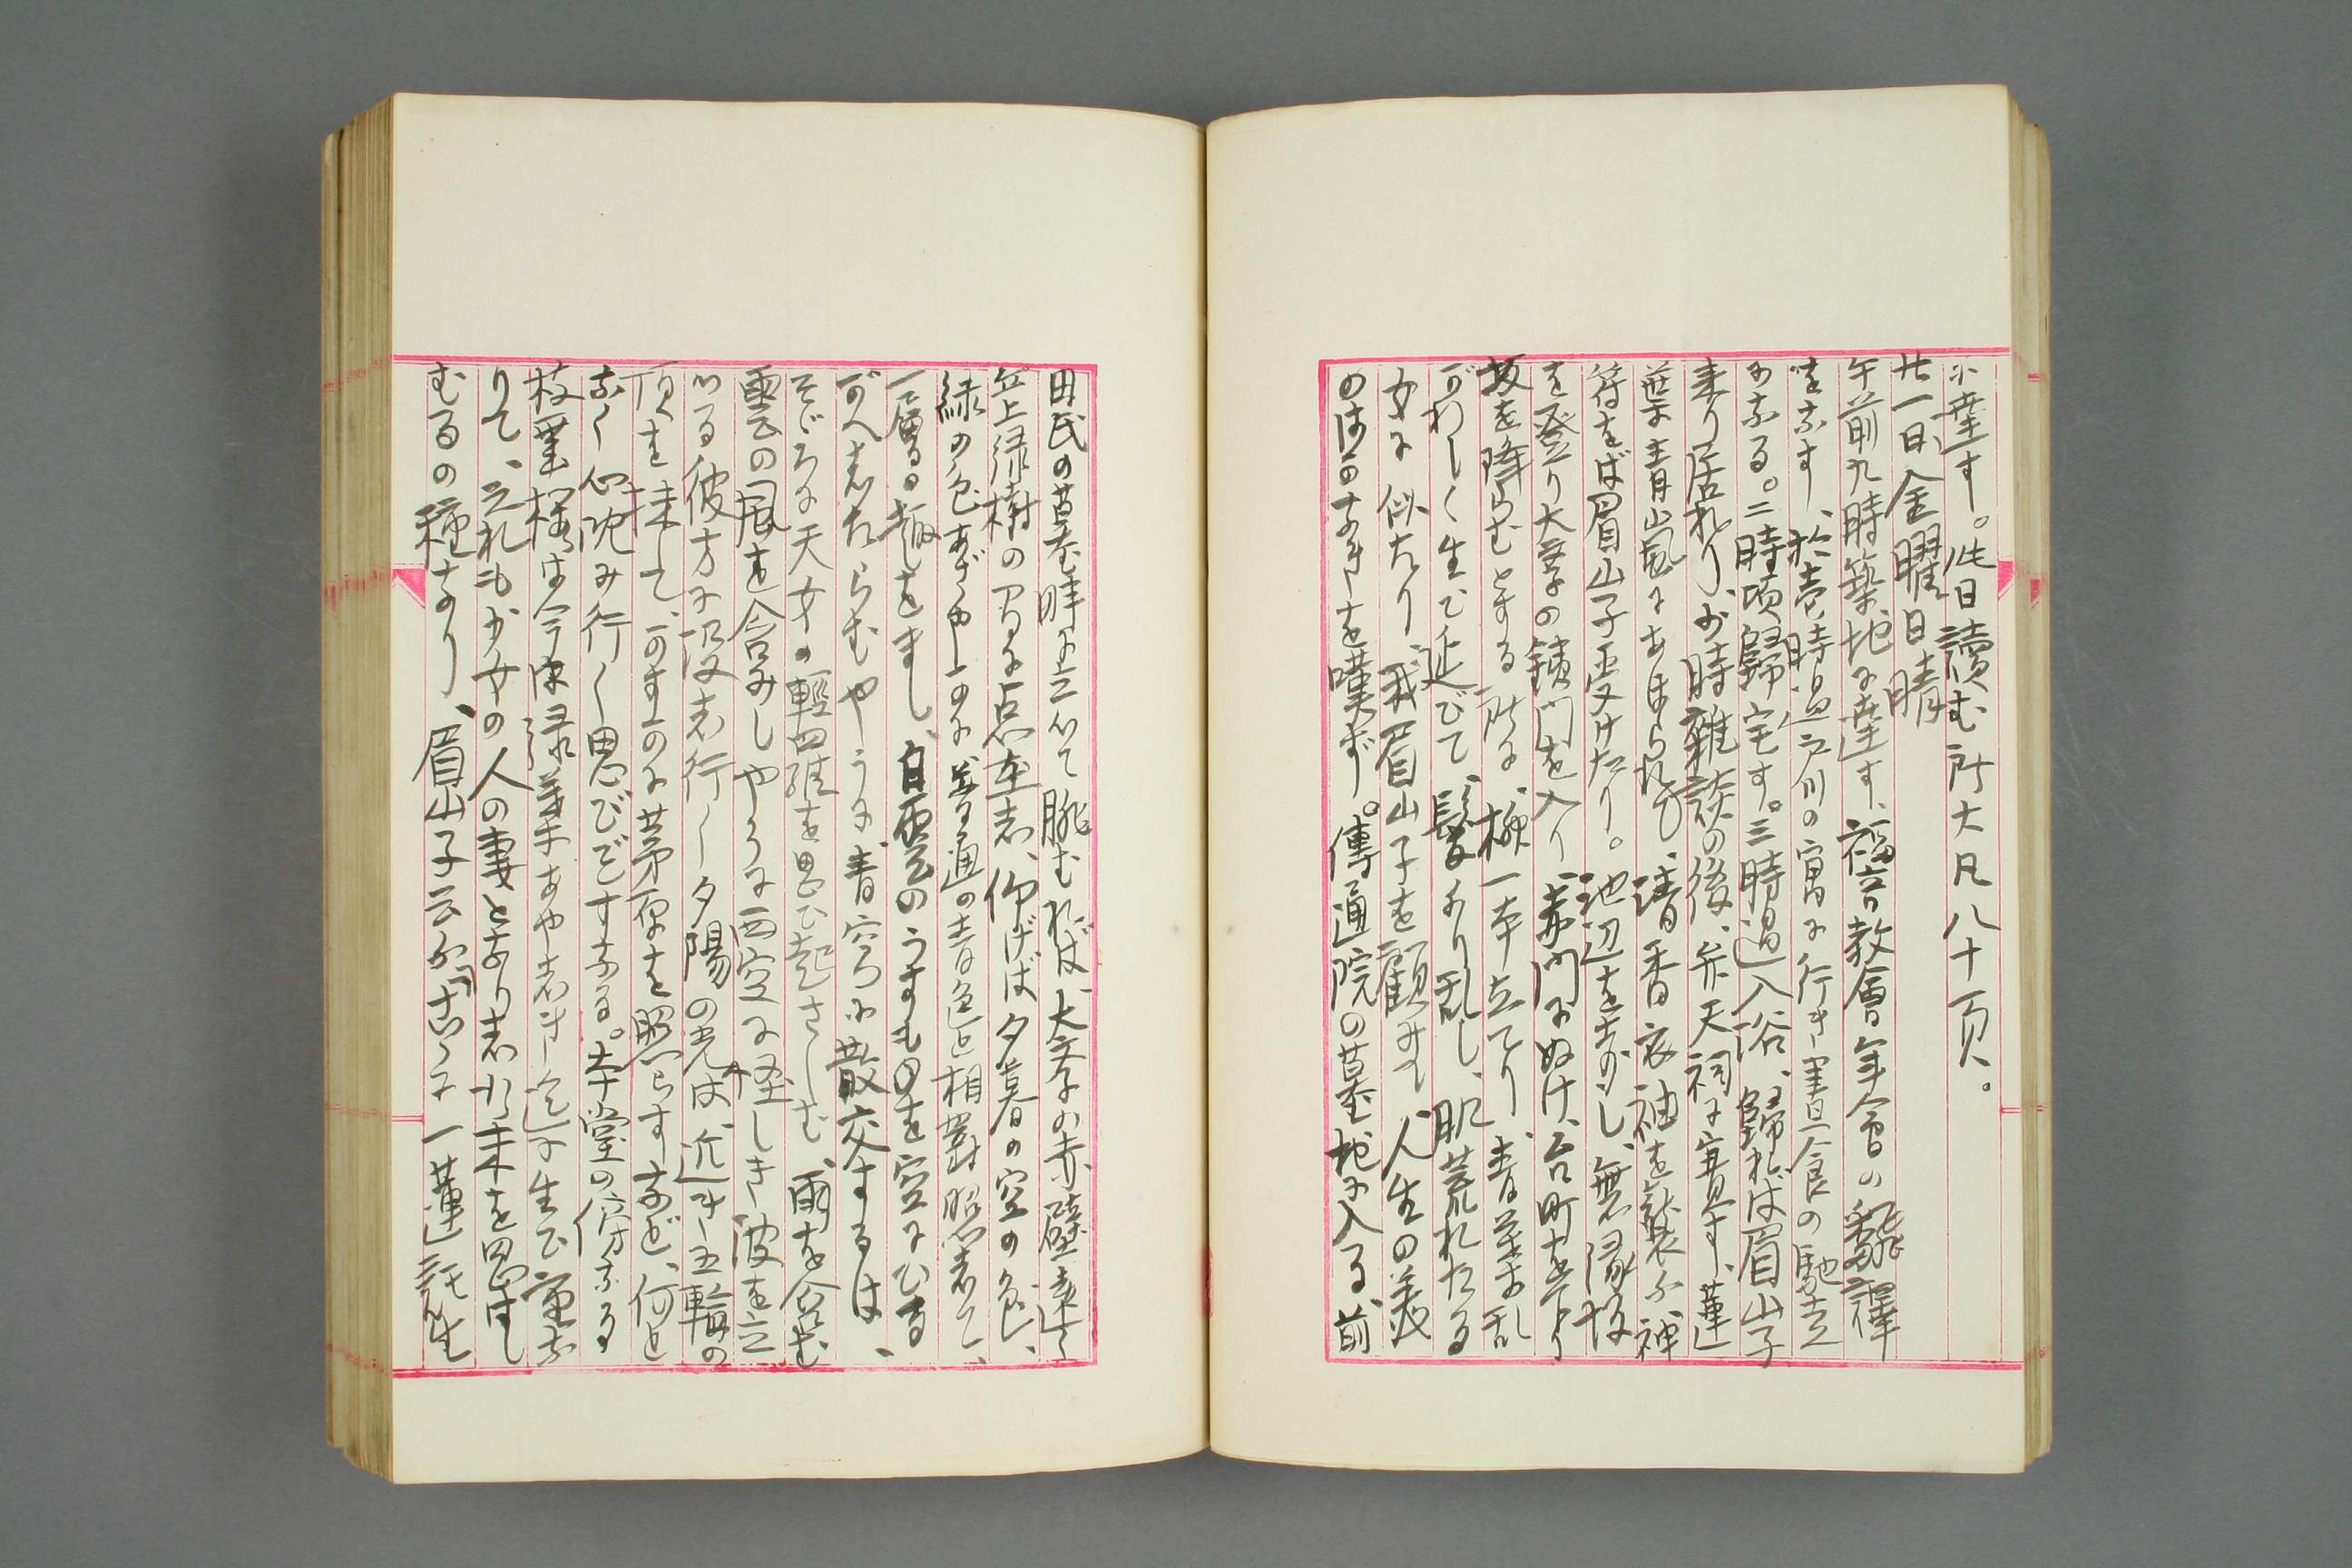 に達す。此日讀む所大凡八十一頁。
廿一日金曜日晴
午前九時築地に達す、福音教會年會の飜譯
をなす、於壱時過立川の宿に行き晝食の馳走
になる。二時頃歸宅す。三時過入浴、歸れば眉山子
来り居れり、少時雜談の後、弁天祠に賽す、蓮
葉青嵐にあほられて、清香衣袖を襲ふ、神
符をば眉山子受けたり。池辺を去りし、無縁坂
を登り大学の鉄門を入り、赤門にぬけ、台町を下り
坂を降らむとする所に、柳一本立てり、青葉乱
がわしく生ひ延びて、髮ふり乱し、肌荒れたる
女に似たり、我眉山子を顧みて人生の義
のはかなきを嘆ず。傳通院の墓地に入る、前
田氏の墓畔に立ひて眺むれば、大学の赤壁遠く
丘上緑樹の間に点在し、仰げば夕暮の空の色、
緑の色あざやかなるに普通の青色と相對照して、
一層の趣をまし、白雲のうすものを空にひる
がへしたらむやうに、青空に散交するは、
そぞろに天女の輕羅を思ひ起さしむ、雨を含む
雲の風を含みしやうに西空に怪しき波を立
つる彼方に没し行く夕陽の光は、近き五輪の
頂を抹して、かすかに茅原を照らすなど、何と
なく心沈み行く思ひぞすなる。本堂の傍なる
枝葉櫻は今深緑葉あやしき迄に生ひ重な
りて、これも少女の人の妻となりし行末を思はし
むるの種なり、眉山子云ふ「古くは一蓮託生